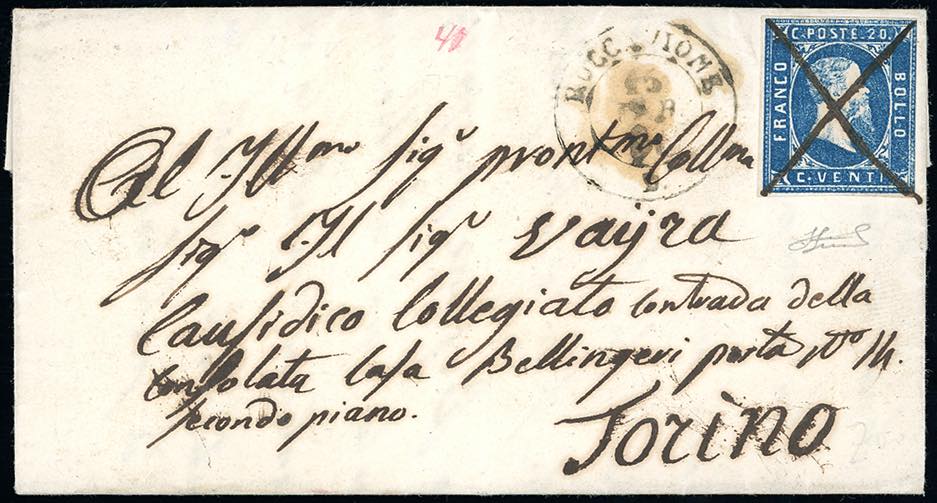 40
ROCCAVIONE
C. POSTE. 20.
FRANCO
BOLLO
C. VENTI
All Ill.mo Sig.r pron Col.mo
Sig.r Il Sig.r Vayra
Causidico Collegiato Contrada della
Consolata Casa Bellingeri porta N.o 14.
secondo piano.
Torino